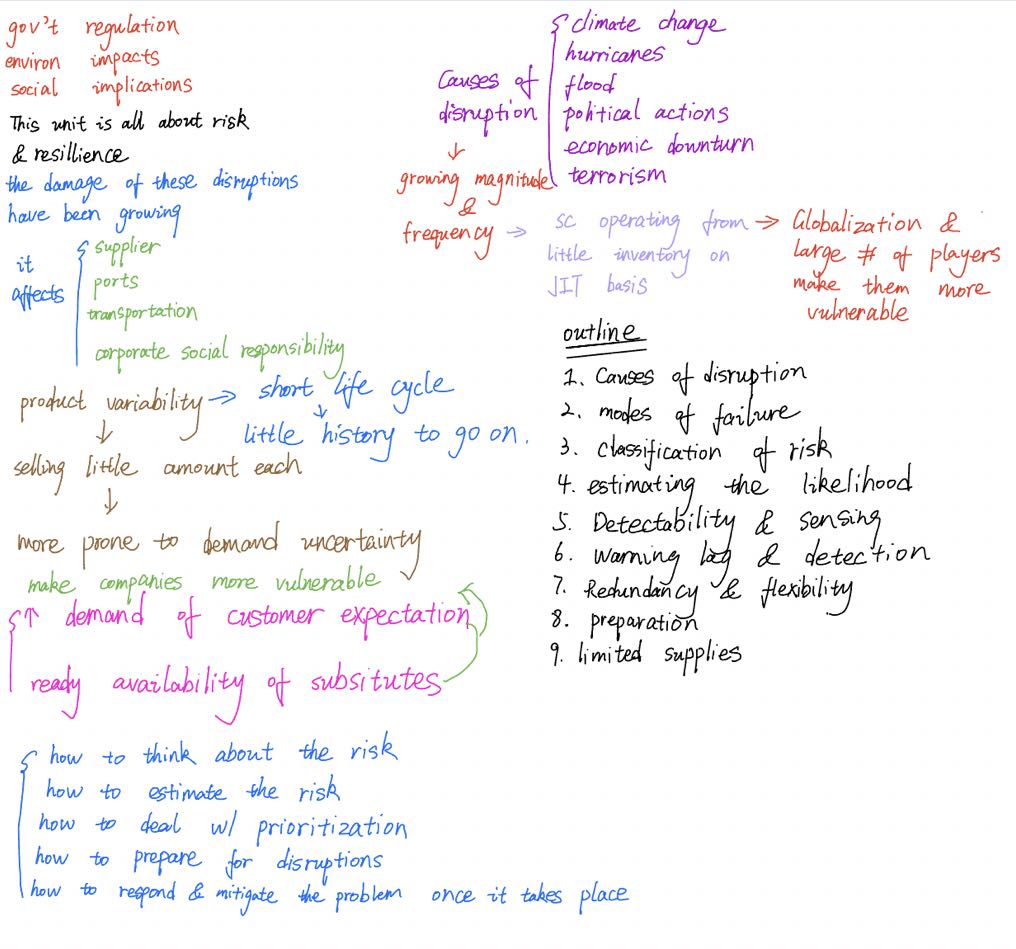 gov't regulation
environ impacts
social implications
This unit is all about risk
& resillience
the damage of these disruptions
have been growing
it
affects
supplier
ports
transportation
corporate social responsibility
product variability → short life cycle
↓
little history to go on.
↓
selling little amount each
↓
more prone to demand uncertainty
make companies more vulnerable
↑ demand of customer expectation
ready availability of subsitutes
how to think about the risk
how to estimate the risk
how to deal w/ prioritization
how to prepare for disruptions
how to respond & mitigate the problem once it takes place
Causes of
disruption
climate change
hurricanes
flood
political actions
economic downturn
terrorism
↓
growing magnitude
&
frequency →
SC operating from →
little inventory on
JIT basis
Globalization &
large # of players
make them more
vulnerable
outline
1. Causes of disruption
2. modes of failure
3. classification of risk
4. estimating the likelihood
5. Detectability & sensing
6. warning lag & detection
7. Redundancy & flexibility
8. preparation
9. limited supplies